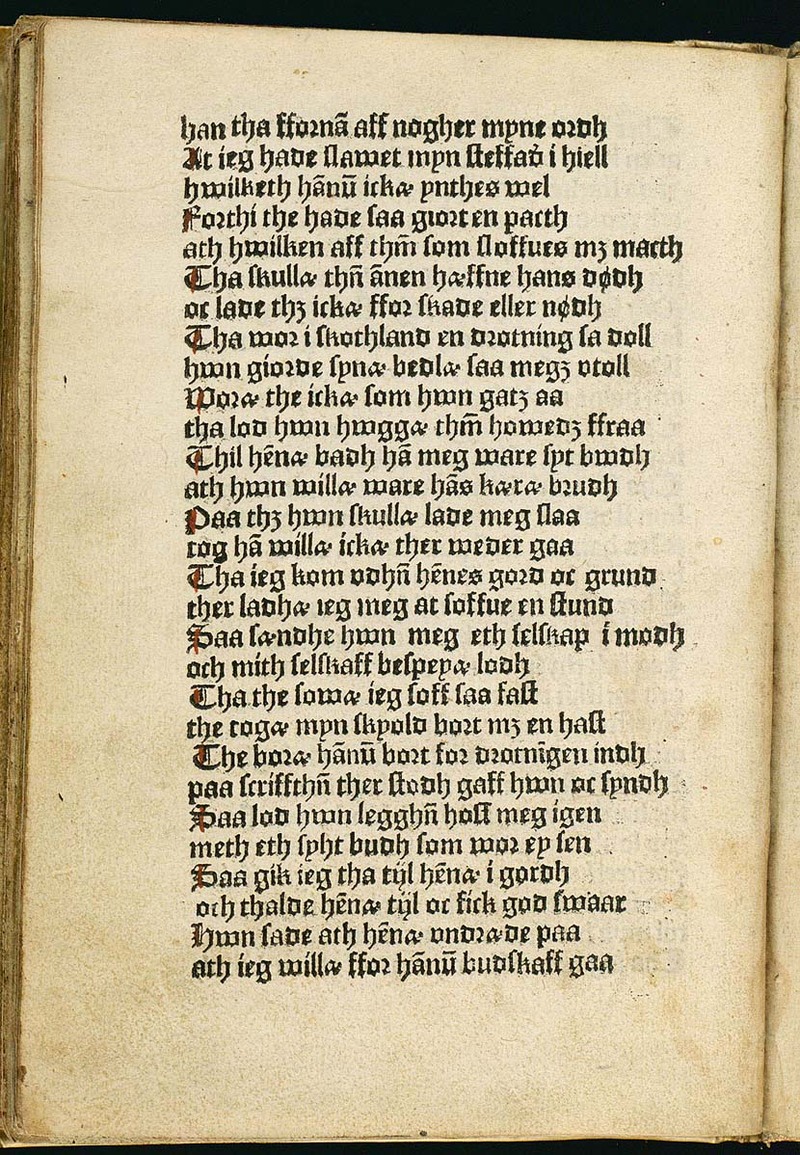 han tha ffornā aff nogher myne ordh
At ieg hade slawet myn steffad̄ i hiell
hwilketh hānū ickæ ynthes wel
Forthi the hade saa giort en pacth
ath hwilken aff thm̄ som sloffues mꝫ macth
Tha skullæ thn̄ ānen hæffne hans dødh
oc lade thꝫ ickæ ffor skade eller nødh
Tha wor i skothland en drotning sa doll
hwn giorde synæ bedlæ saa megꝫ vtoll
Woræ the ickæ som hwn gatꝫ aa
tha lod hwn hwggæ thm̄ howedꝫ ffraa
Thil hēnæ badh hā meg ware syt bwdh
ath hwn willæ ware hās kæræ brudh
Paa thꝫ hwn skullæ lade meg slaa
tog hā willæ ickæ ther weder gaa
Tha ieg kom vdhn̄ hēnes gord oc grund
ther ladhæ ieg meg at soffue en stund
Saa sændhe hwn meg eth selskap i modh
och mith selskaff bespeyæ lodh
Tha the sowæ ieg soff saa fast
the togæ myn skyold bort mꝫ en hast
The boræ hānū bort for drotnīgen indh
paa scriffthn̄ ther stodh gaff hwn oc syndh
Saa lod hwn legghn̄ hoss meg igen
meth eth syht budh som wor ey sen
Saa gik ieg tha tijl hēnæ i gordh
och thalde hēnæ tijl oc fick god swaar
Hwn sade ath hēnæ vndræde paa
ath ieg willæ ffor hānū budskaff gaa